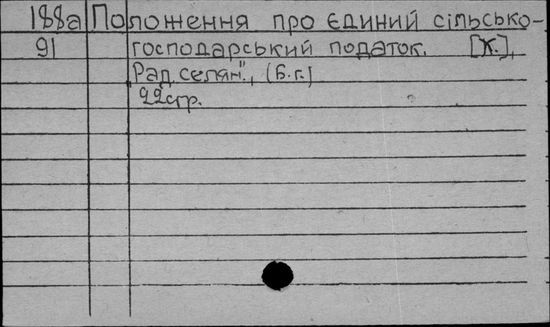 188а Положення про єдиний сільсько-
91 господарський податок. [Х.],
Рад. селян.", (б.г.)
22стр.